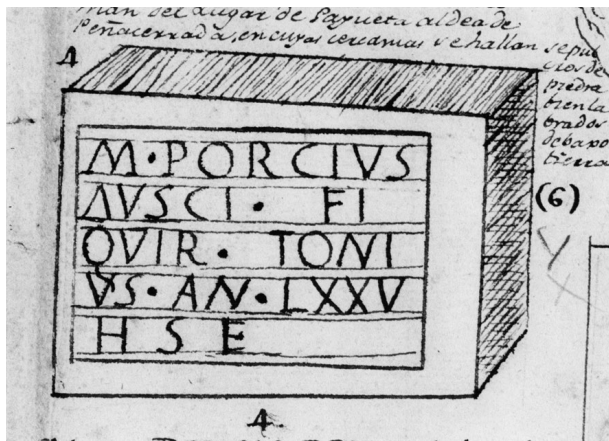 del Lugar de Payueta aldea de
Peñacerrada, en cuyas cercanias se hallan sepul
cros de
piedra
bien la
brados
debaxo
tierra
4
M·PORCIVS
AVSCI· FI
QVIR· TONI
VS·AN·LXXV
H S E
(6)
4